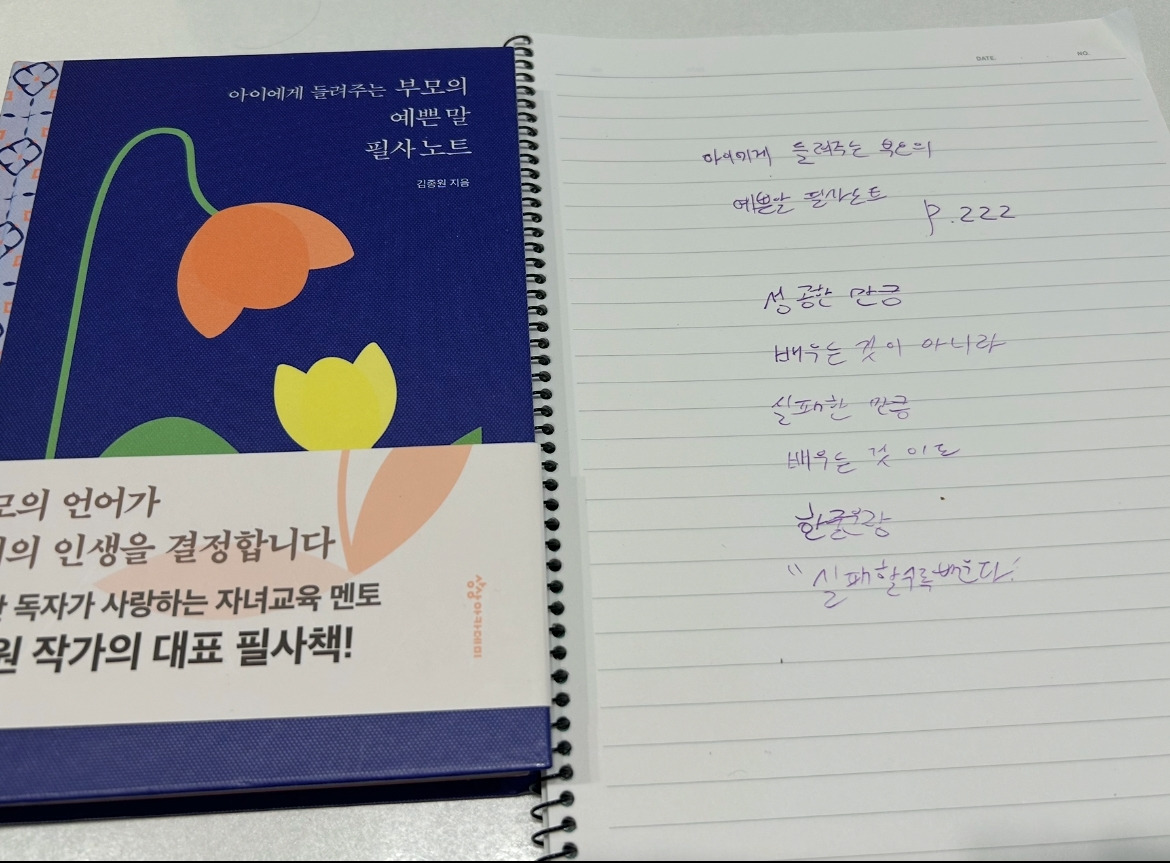 아이에게 들려주는 부모의
예쁜 말
필사 노트
김종원 지음
모의 언어가
의 인생을 결정합니다
독자가 사랑하는 자녀교육 멘토
원 작가의 대표 필사책!
상상아카데미
DATE.
NO.
아이에게 들려주는 부모의
예쁜말 필사노트
p.222
성공한 만큼
배우는 것이 아니라
실패한 만큼
배우는 것이도
"실패할수록배운다!